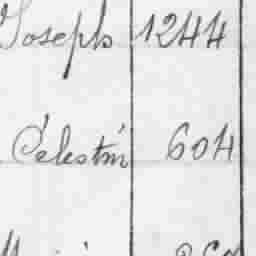 Joseph 1244
Célestin 604